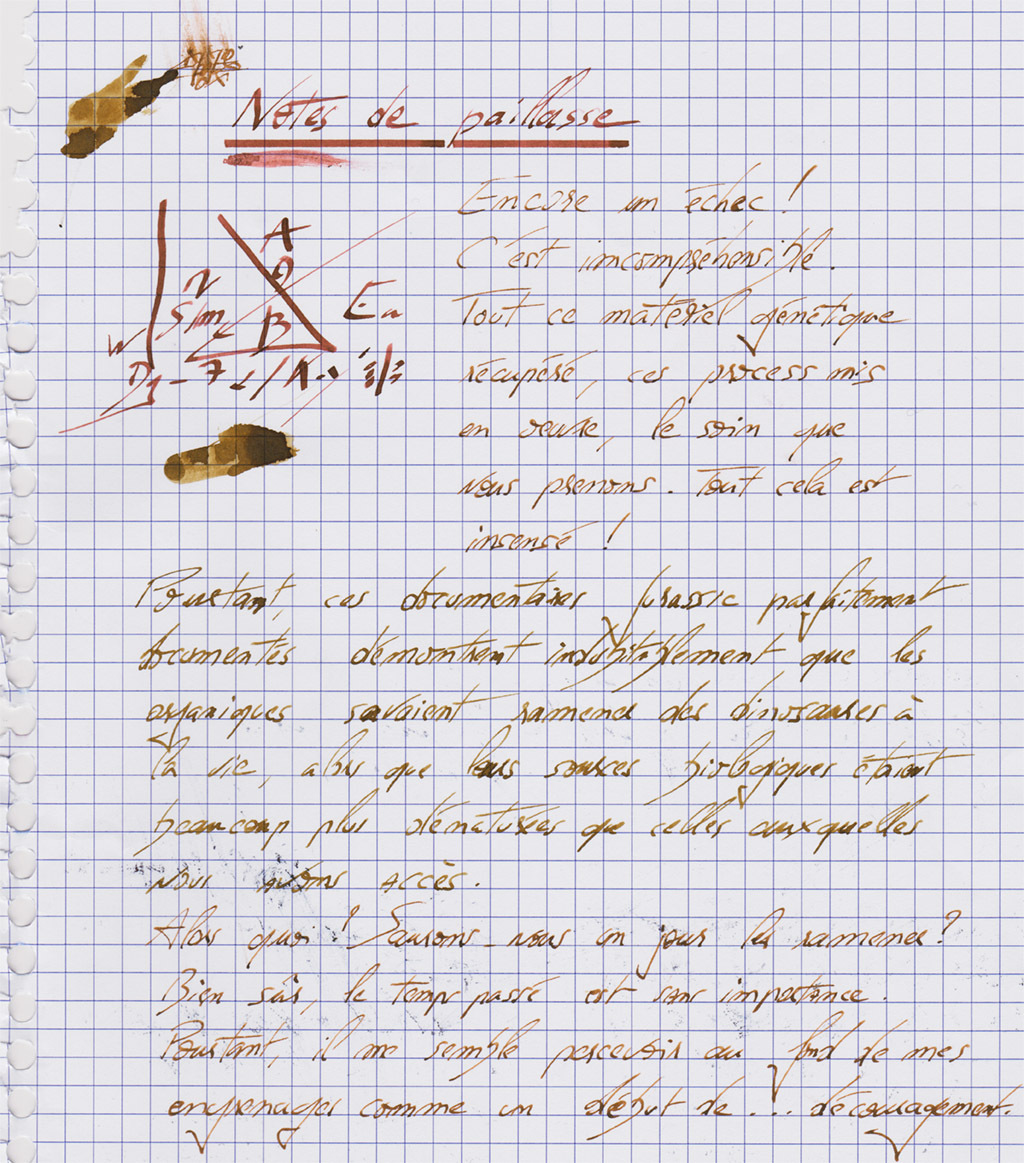 Notes de paillasse
Encore un échec !
C'est incompréhensible.
Tout ce matériel génétique
récupéré, ces process mis
en oeuvre, le soin que
nous prenons. Tout cela est
insensé !
Pourtant, ces documentaires Jurassic parfaitement
documentés démontrent indubitablement que les
organiques savaient ramener des dinosaures à
la vie, alors que leurs sources biologiques étaient
beaucoup plus dénaturées que celles auxquelles
nous avons accès.
Alors quoi ! Saurons-nous un jour les ramener ?
Bien sûr, le temps passé est sans importance.
Pourtant, il me semble percevoir au fond de mes
engrenages comme un début de ... découragement.